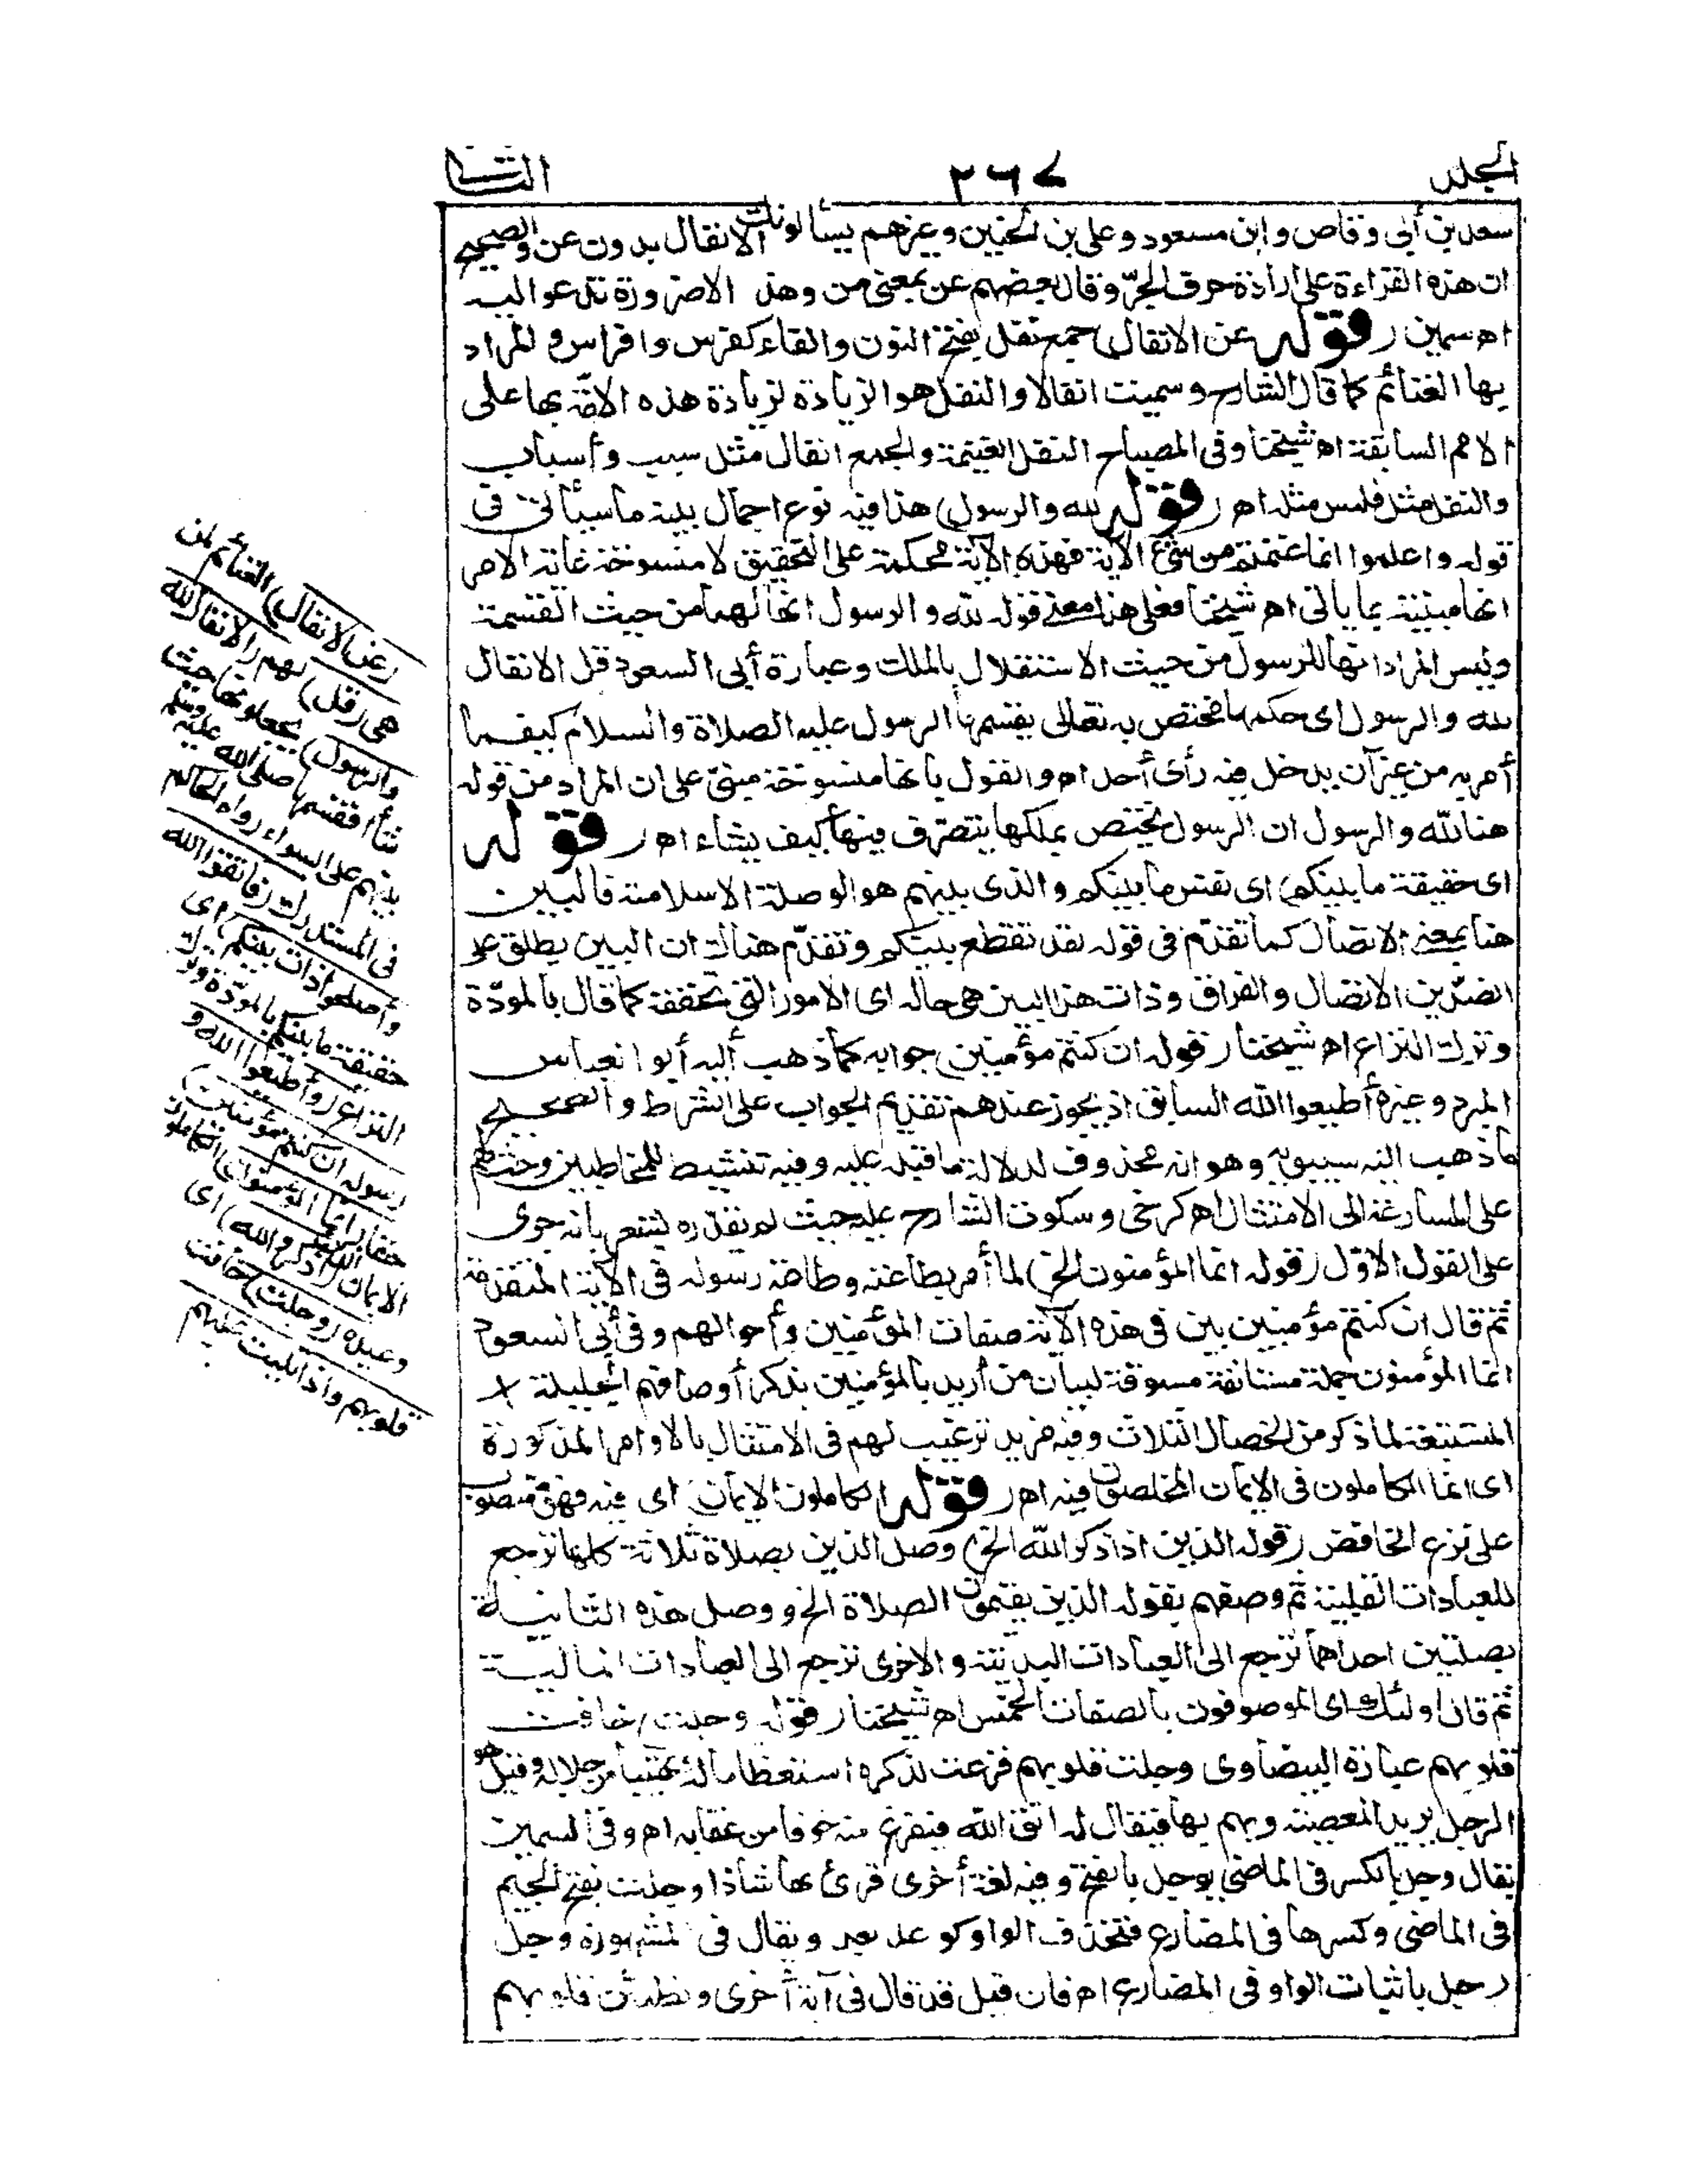 المجلد ٢٦٧ الثانى
سعد بن أبى وقاص وابن مسعود وعلى بن الحسين وغيرهم يسألونك الانفال بدون عن والصحيح
ان هذه القراءة على ارادة حرف الجرّ وقال بعضهم عن بمعنى من وهذا لاضرورة تدعو اليه
اه سمين (قوله عن الانفال) جمع نفل بفتح النون والفاء كفرس وافراس والمراد
بها الغنائم كما قال الشارح وسميت انفالا والنفل هو الزيادة لزيادة هذه الامّة بها على
الامم السابقة اه شيخنا وفى المصباح النفل الغنيمة والجمع انفال مثل سبب وأسباب
والنفل مثل فلس مثله اه (قوله لله والرسول) هذا فيه نوع اجمال بينه ما سيأتى فى
قوله واعلموا انما غنمتم من شئ الآية فهذه الآية محكمة على التحقيق لا منسوخة غاية الامر
انها مبينة بما يأتى اه شيخنا فعلى هذا معنى قوله لله والرسول انها لهما من حيث القسمة
وليس المراد انها للرسول من حيث الاستقلال بالملك وعبارة أبى السعود قل الانفال
لله والرسول اى حكمها مختص به تعالى يقسمها الرسول عليه الصلاة والسلام كيفما
أمر به من غير أن يدخل فيه رأى أحد اه والقول بانها منسوخة مبنىّ على ان المراد من قوله
هنا لله والرسول ان الرسول يختص بملكها يتصرف فيها كيف يشاء اه (قوله
اى حقيقة ما بينكم) اى نفس ما بينكم والذى بينهم هو الوصلة الاسلامية فالبين
هنا بمعنى الاتصال كما تقدّم فى قوله لقد تقطع بينكم وتقدّم هناك ان البين يطلق على
الضدّين الاتصال والفراق وذات هذا البين هى حاله اى الامور التى تحققه كما قال بالمودّة
وترك النزاع اه شيخنا (قوله ان كنتم مؤمنين) جوابه كما ذهب أليه أبو العباس
المبرد وغيره أطيعوا الله السابق اذ يجوز عندهم تقديم الجواب على الشرط والصحيح
ما ذهب اليه سيبويه وهو انه محذوف لدلالة ما قبله عليه وفيه تنشيط للمخاطبين وحث لهم
على المسارعة الى الامتثال اه كرخى وسكوت الشارح عليه حيث لم يقدّره يشعر بانه جرى
على القول الاوّل (قوله انما المؤمنون الخ) لما أمر بطاعته وطاعة رسوله فى الآية المتقدّمة
ثم قال ان كنتم مؤمنين بين فى هذه الآية صفات المؤمنين وأحوالهم وفى أبى السعود
انما المؤمنون جملة مستأنفة مسوقة لبيان من أريد بالمؤمنين بذكر أوصافهم الجليلة
المستتبعة لما ذكر من الخصال الثلاث وفيه مزيد ترغيب لهم فى الامتثال بالاوامر المذكورة
اى انما الكاملون فى الايمان المخلصون فيه اه (قوله الكاملون الايمان) اى فيه فهو منصوب
على نزع الخافض (قوله الذين اذا ذكر الله الخ) وصل الذين بصلاة ثلاثة كلها ترجع
للعبادات القلبية ثم وصفهم بقوله الذين يقيمون الصلاة الخ ووصل هذه الثانية
بصلتين احداهما ترجع الى العبادات البدنية والاخرى ترجع الى العبادات المالية
ثم قال اولئك اى الموصوفون بالصفات الخمس اه شيخنا (قوله وجلت) خافت
قلوبهم عبارة البيضاوى وجلت قلوبهم فزعت لذكره استعظاما له وتهيبا من جلاله وقيل هو
الرجل يريد المعصية ويهم بها فيقال له اتق الله فيفزع منه خوفا من عقابه اه وفى السمين
يقال وجل بالكسر فى الماضى يوجل بالفتح وفيه لغة أخرى قرئ بها شاذا وجلت بفتح الجيم
فى الماضى وكسرها فى المضارع فتحذف الواو كوعد يعد ويقال فى المشهورة وجل
يوجل باثبات الواو فى المضارع اه فان قيل قد قال فى آية أخرى وتطمئن قلوبهم
(عن الانفال) الغنائم لمن
هى (قل) لهم (الانفال لله
والرسول) يجعلونها حيث
شاآ فقسمها صلى الله عليه وسلم
بينهم على السواء رواه الحاكم
فى المستدرك (فاتقوا الله
وأصلحوا ذات بينكم) اى
حقيقة ما بينكم بالمودّة وترك
النزاع (وأطيعوا الله و
رسوله ان كنتم مؤمنين)
حقا (انما المؤمنون) الكاملون
الايمان (الذين اذا ذكر الله) اى
وعيده (وجلت) خافت
قلوبهم واذا تليت عليهم